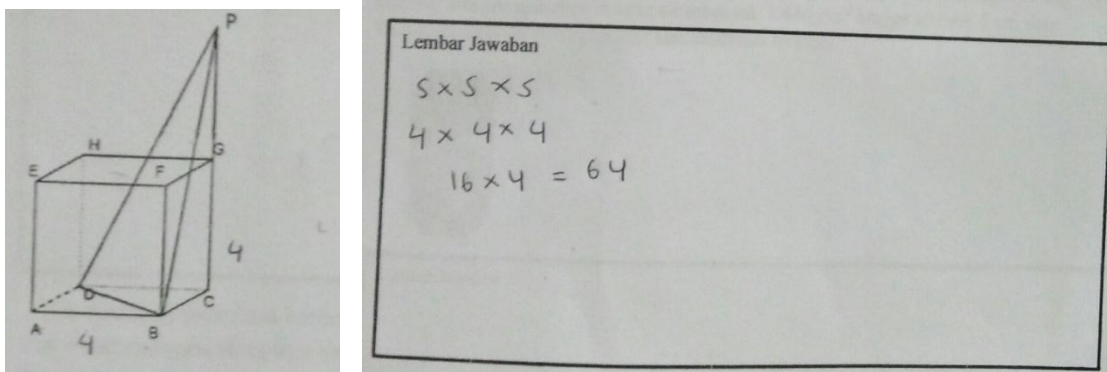 P
H
G
E
F
4
D
C
A
B
4
Lembar Jawaban
5 x 5 x 5
4 x 4 x 4
16 x 4 = 64